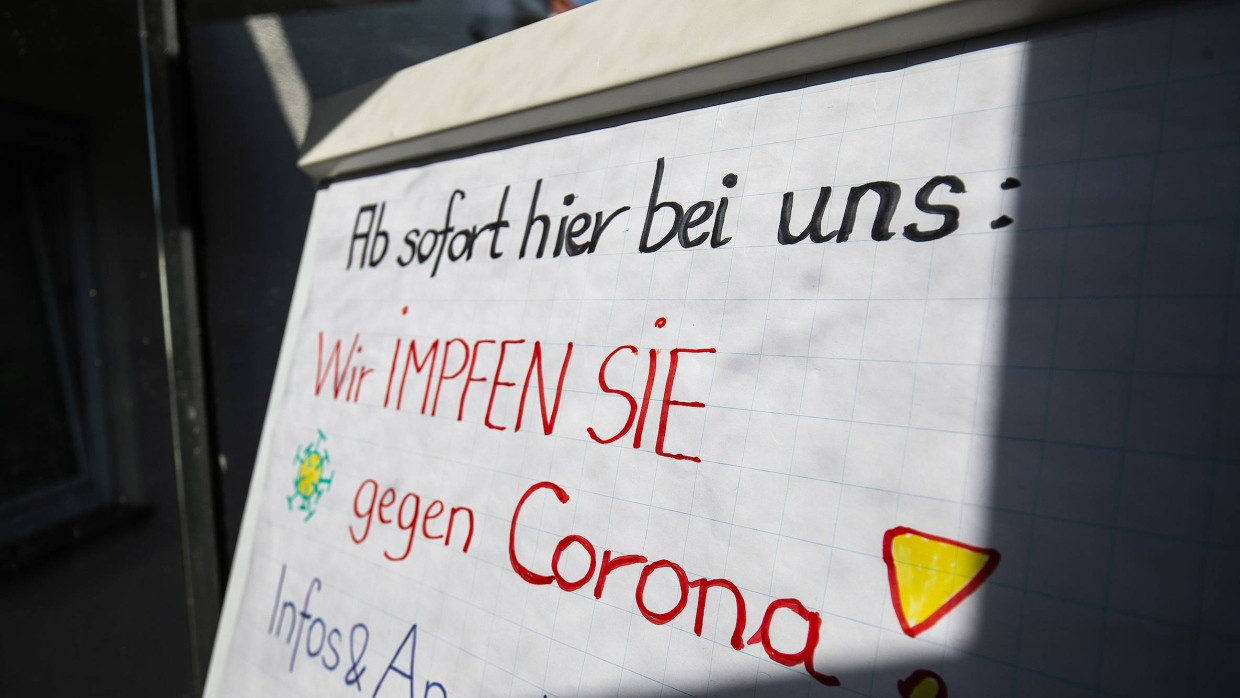 Ab sofort hier bei uns:
Wir IMPFEN SIE
gegen Corona
Infos &